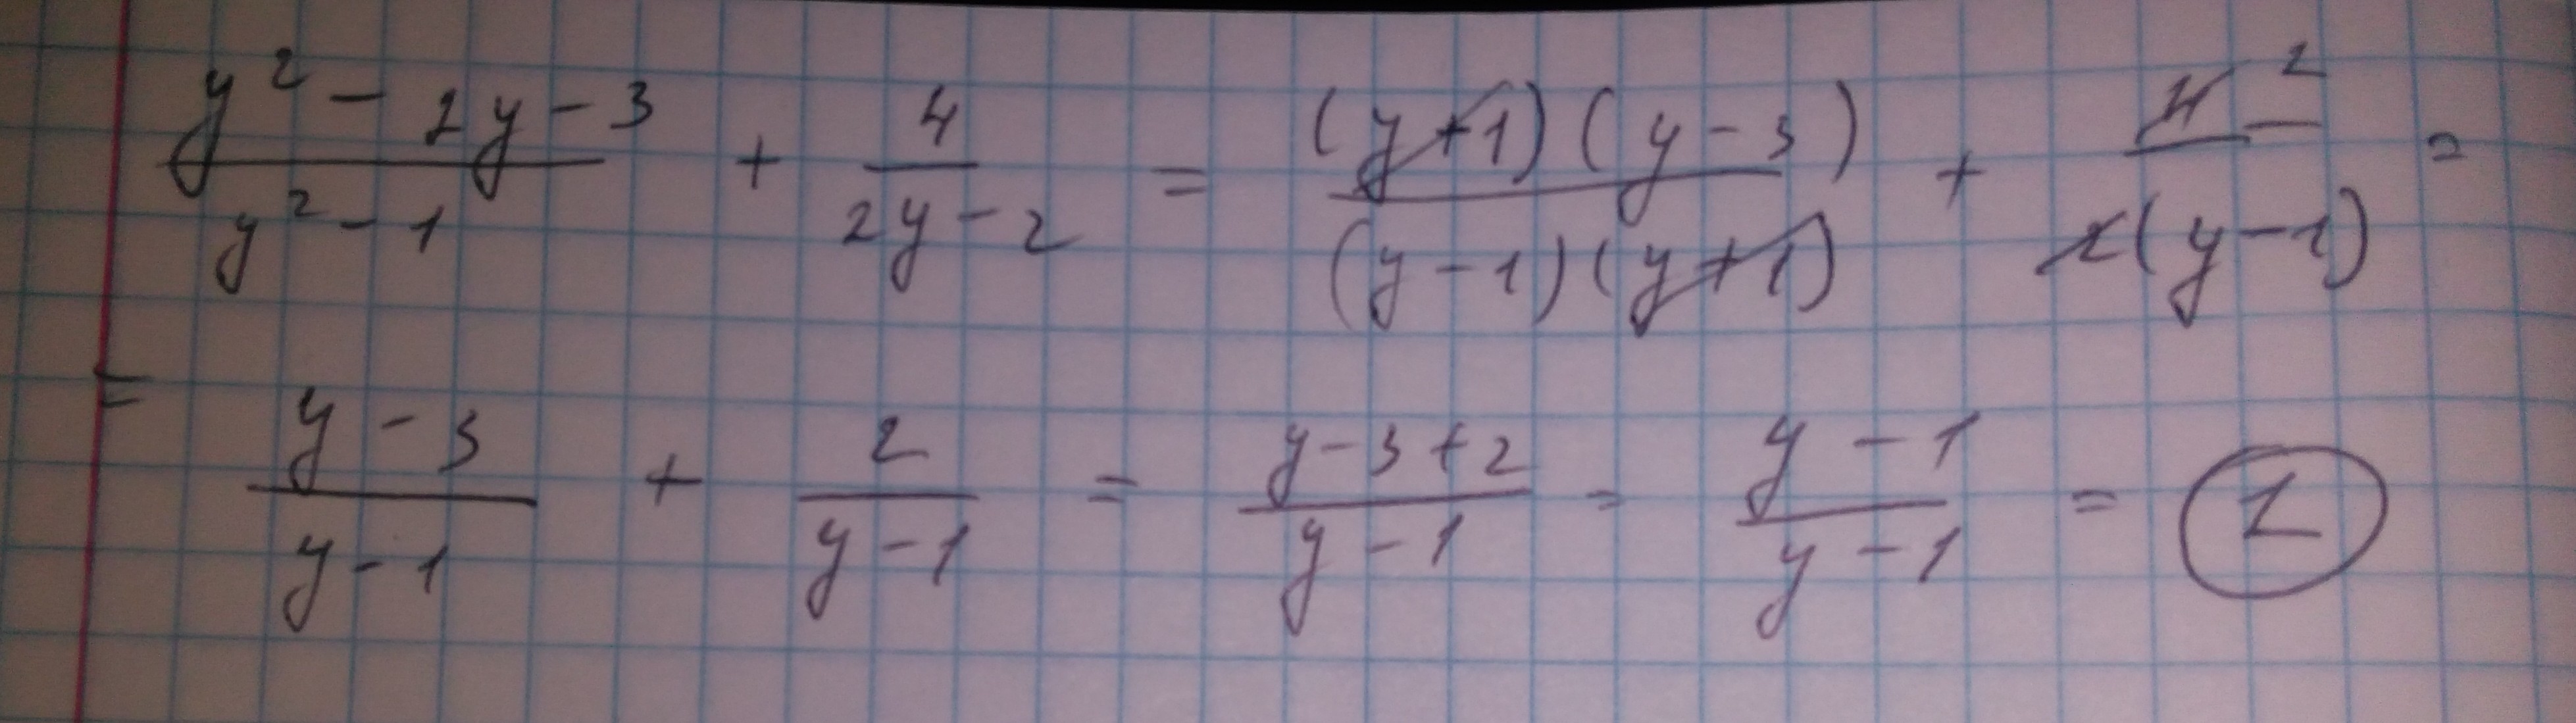 (y² - 2y - 3)/(y² - 1) + 4/(2y - 2) = ((y+1)(y-3))/((y-1)(y+1)) + 4 2/(2(y-1)) =
= (y-3)/(y-1) + 2/(y-1) = (y-3+2)/(y-1) = (y-1)/(y-1) = 1